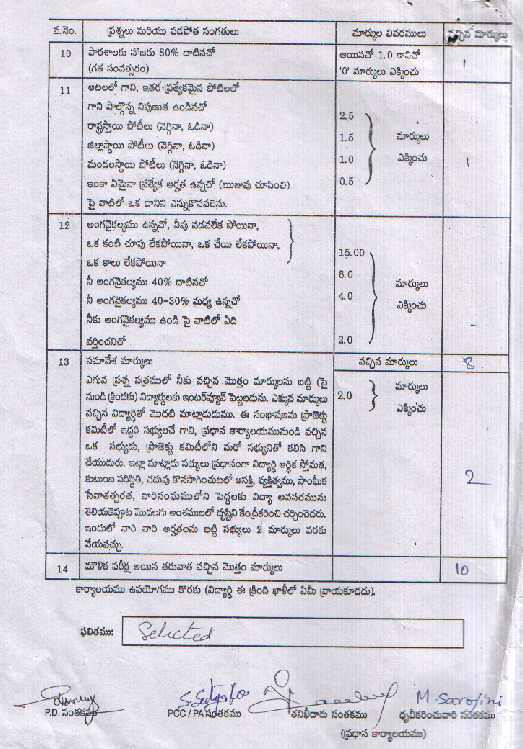 వ.నెం. ప్రశ్నలు మరియు పడపోత సంగతులు మార్కుల వివరములు వచ్చిన మార్కులు
10 పాఠశాలకు హాజరు 80% దాటినచో ఆయినచో 1.0 కానిచో 1
(గత సంవత్సరం) '0' మార్కులు ఎక్కించు
11 ఆటలలో గాని, ఇతర ప్రత్యేకమైన పోటీలలో
గాని పాల్గొన్న నిపుణుత ఉండినచో 2.5
రాష్ట్రస్థాయి పోటీలు (నెగ్గినా, ఓడినా) 1.5 మార్కులు
జిల్లాస్థాయి పోటీలు (నెగ్గినా, ఓడినా) 1.0 ఎక్కించు 1
మండలస్థాయి పోటీలు (నెగ్గినా, ఓడినా) 0.5
ఇంకా ఏమైనా ప్రత్యేక అర్హత ఉన్నచో (ఋజువు చూపించి)
పై వాటిలో ఒక దానిని ఎన్నుకొనవలెను.
12 అంగవైకల్యము ఉన్నచో, నీవు నడవలేక పోయినా,
ఒక కంటి చూపు లేకపోయినా, ఒక చేయి లేకపోయినా, 15.00
ఒక కాలు లేకపోయినా
నీ అంగవైకల్యము 40% దాటినచో మార్కులు
నీ అంగవైకల్యము 40-30% మధ్య ఉన్నచో 4.0 ఎక్కించు -
నీకు అంగవైకల్యము ఉండి పై వాటిలో ఏది 2.0
వర్తించనిచో
13 సమావేశ మార్కులు వచ్చిన మార్కులు 8
ఎగువ ప్రశ్న పత్రములో నీకు వచ్చిన మొత్తం మార్కులను బట్టి (పై 2.0 మార్కులు
నుండి క్రిందకు) విద్యార్థులకు ఇంటర్వ్యూకి పెట్టబడును. ఎక్కువ మార్కులు ఎక్కించు
వచ్చిన విద్యార్థితో మొదటి మాట్లాడుదుము. ఈ సంభాషణను ప్రాజెక్టు
కమిటీలో ఇద్దరి సభ్యులచే గాని, ప్రధాన కార్యాలయమునుండి వచ్చిన
ఒక సభ్యుడు, ప్రాజెక్టు కమిటీలోని మరో సభ్యునితో కలిసి గాని
చేయుదురు. ఇట్లా మాట్లాడు సభ్యులు ప్రధానంగా విద్యార్థి ఆర్థిక స్తోమత,
కుటుంబ పరిస్థితి, చదువు కొనసాగించుటలో ఆసక్తి, వ్యక్తిత్వము, సాంఘిక 2
సేవాతత్పరత, వారిసంఘములోని పెద్దలకు విద్యా అవసరమును
తెలియచెప్పుట మొదలగు అంశములలో దృష్టిని కేంద్రీకరించి చర్చించెదరు.
ఇందులో వారి వారి అర్హతలను బట్టి సభ్యులు 2 మార్కులు వరకు
వేయవచ్చు.
14 మౌఖిక పరీక్ష అయిన తరువాత వచ్చిన మొత్తం మార్కులు 10
కార్యాలయము ఉపయోగము కొరకు (విద్యార్థి ఈ క్రింది ఖాళీలో ఏమీ వ్రాయకూడదు).
ఫలితము: Selected
M. Sarojini
P.D. సంతకము PCC / PA సంతకము తనిఖీదారు సంతకము ధృవీకరించువారి సంతకము
(ప్రధాన కార్యాలయము)